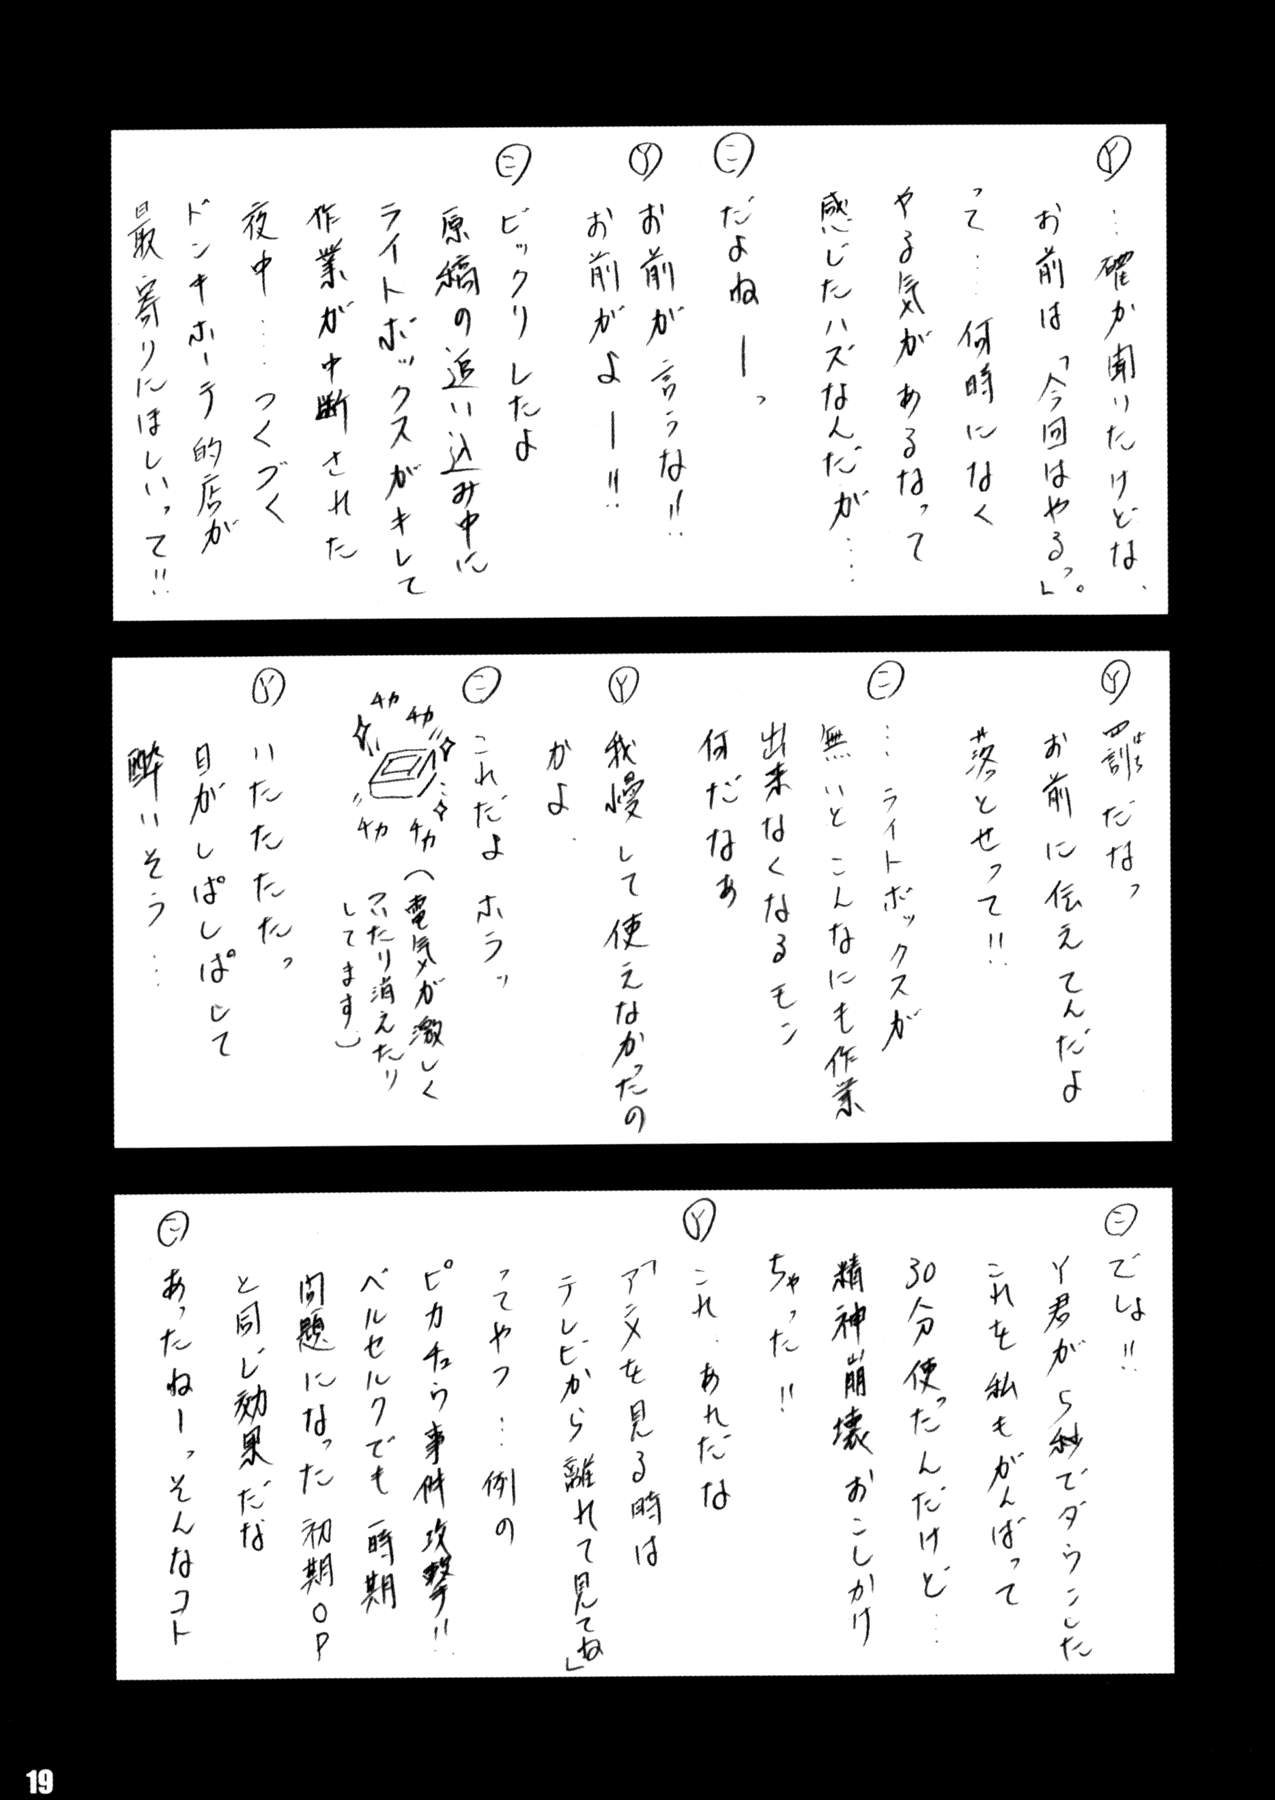 Ⓨ …確か聞いたけどな、
お前は「今回はやるっ。」
って……何時になく
やる気があるなって
感じたハズなんだが……
㊁ だよねーっ
Ⓨ お前が言うな!!
お前がよー!!
㊁ ビックリしたよ
原稿の追い込み中に
ライトボックスがキレて
作業が中断された
夜中……つくづく
ドンキホーテ的店が
最寄りにほしいって!!
Ⓨ 罰だなっ
ばち
お前に伝えてんだよ
落とせって!!
㊁ …ライトボックスが
無いとこんなにも作業
出来なくなるモン
何だなぁ
Ⓨ 我慢して使えなかったの
かよ.
㊁ これだよ ホラッ
チカ
チカ
チカ
チカ
(電気が激しく
ついたり消えたり
してます)
Ⓨ いたたたたっ
目がしぱしぱして
酔いそう…
㊁ でしょ!!
Y君が5秒でダウンした
これを私もがんばって
30分使ったんだけど…
精神崩壊おこしかけ
ちゃった!!
Ⓨ これ、あれだな
「アニメを見る時は
テレビから離れて見てね」
ってやつ…例の
ピカチュウ事件攻撃!!
ベルセルクでも一時期
問題になった初期OP
と同じ効果だな
㊁ あったねーっそんなコト
19